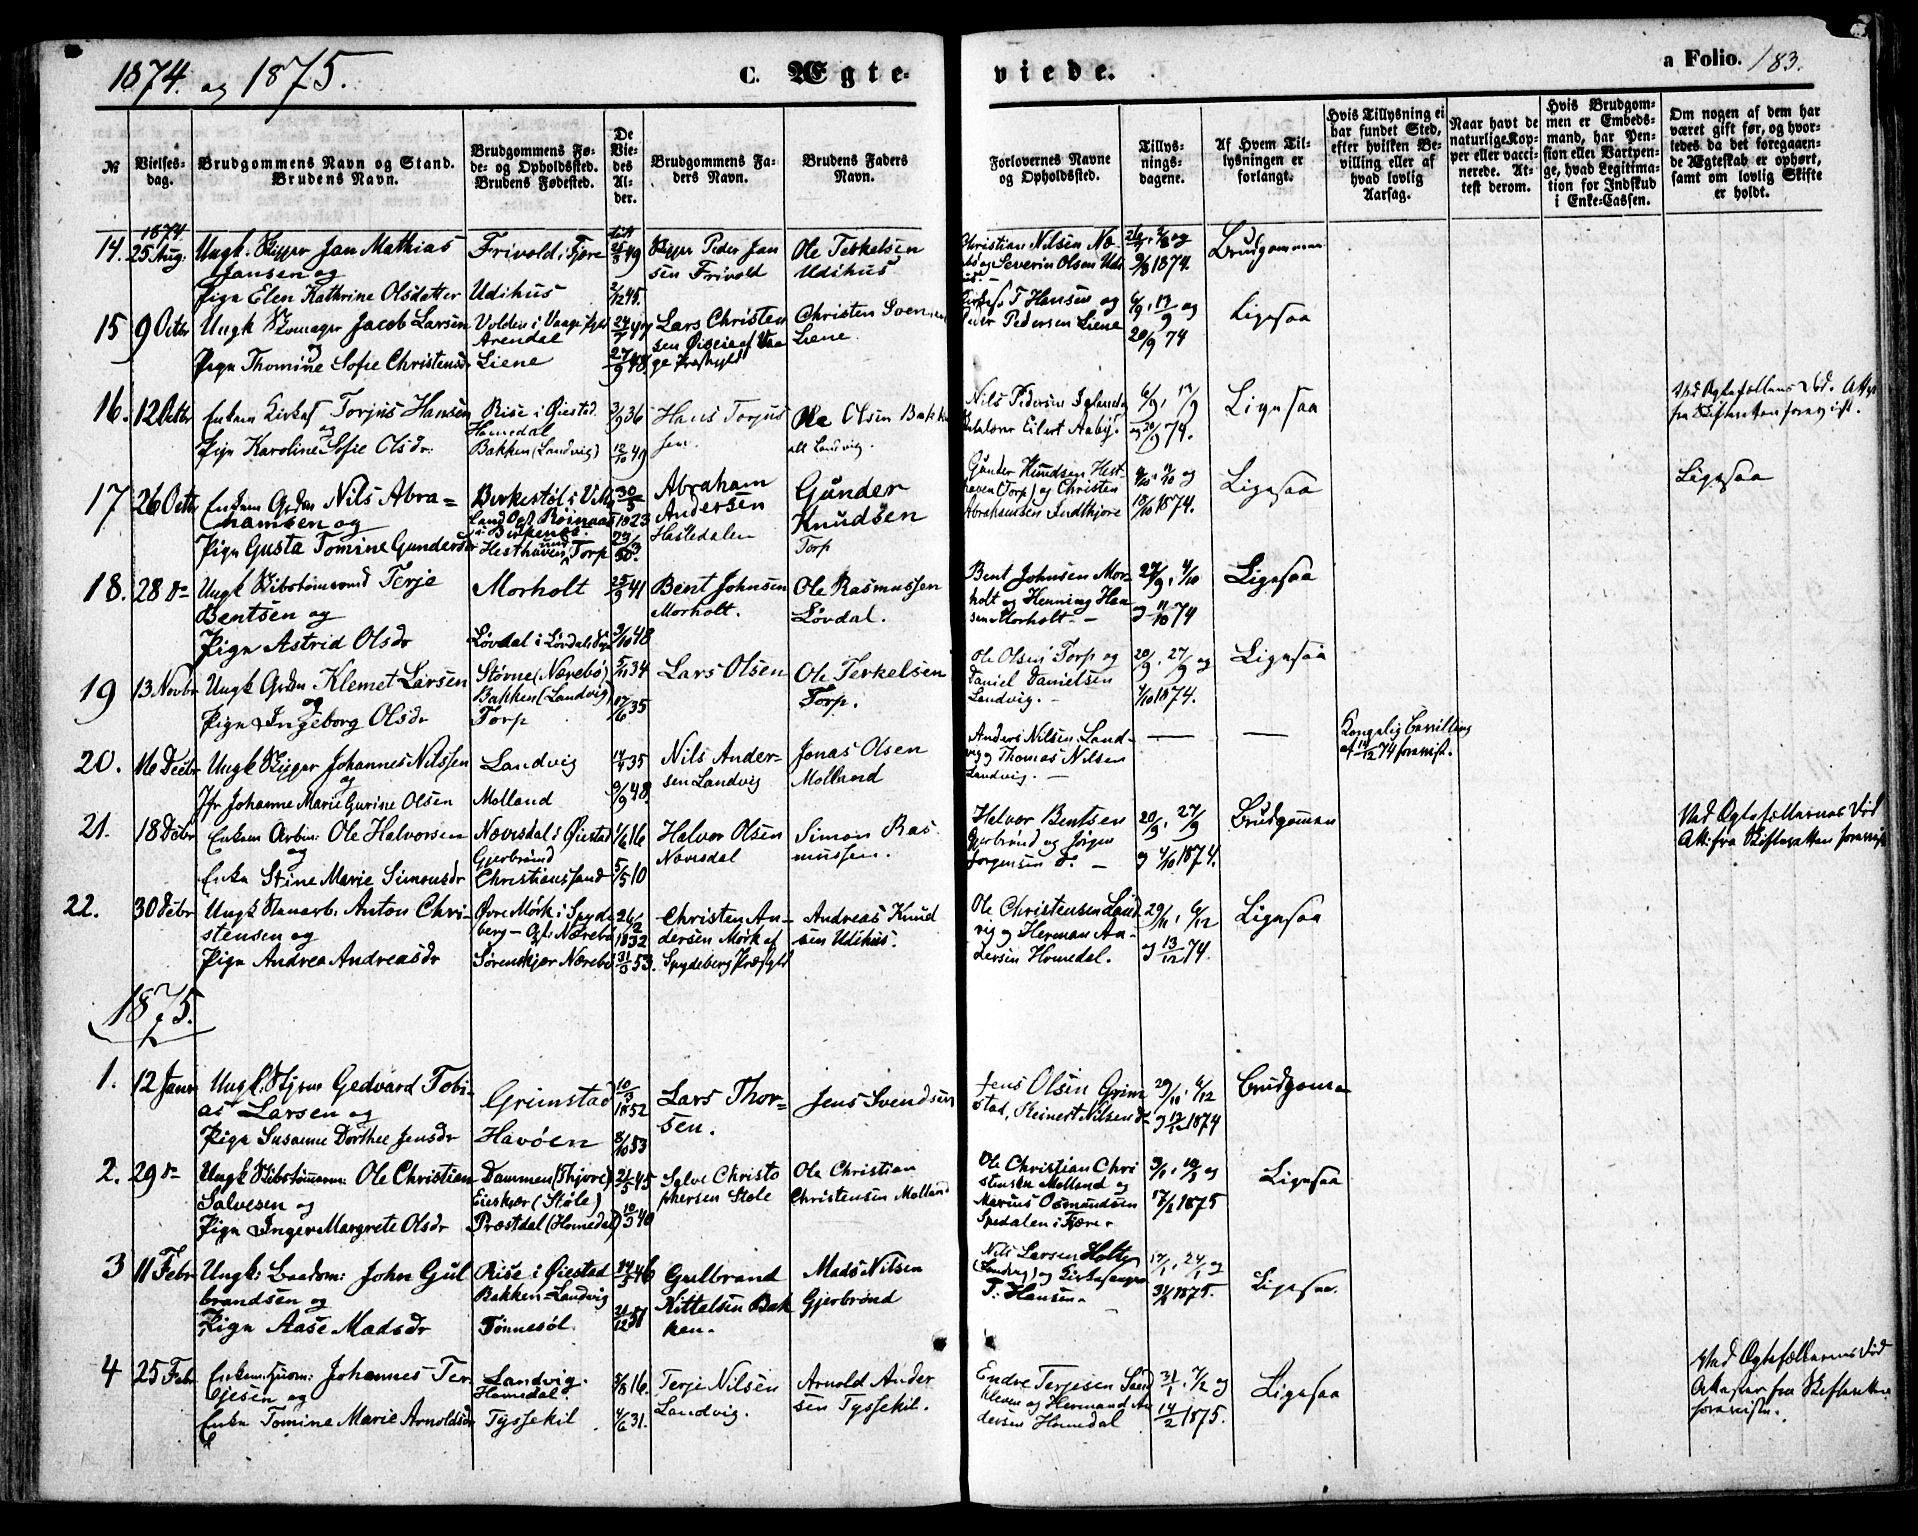 1874 og 1875.
C. Ægteviede.
a Folio. 183.
№
Vielses-
dag.
Brudgommens Navn og Stand.
Brudens Navn.
Brudgommens Fø-
de- og Opholdssted.
Brudens Fødested.
De
Vie-
des
Al-
der.
Brudgommens Fa-
ders Navn.
Brudens Faders
Navn.
Forlovernes Navne
og Opholdssted.
Tillys-
nings-
dagene.
Af Hvem Til-
lysningen er
forlangt.
Hvis Tillysning ei
har fundet Sted,
efter hvilken Be-
villing eller af
hvad lovlig
Aarsag.
Naar havt de
naturlige Kop-
per eller vacci-
nerede. At-
test derom.
Hvis Brudgom-
men er Embeds-
mand, har Pen-
sion eller Vartpen-
ge, hvad Legitima-
tion for Indskud
i Enke-Cassen.
Om nogen af dem har
været gift før, og hvor-
ledes da det foregaaen-
de Ægteskab er ophørt,
samt om lovlig Skifte
er holdt.
1874
14. 25 Aug.
Ungk. Skipper Jan Mathias
Jansen og
Pige Elen Kathrine Olsdatter
Frivold i Fjære
Udihus
25/5 49
2/12 45.
Skipper Peder Jan
sen Frivold
Ole Terkelsen
Udihus
Christian Nilsen
og Severin Olsen
9/8 1874.
Brudgommen
15 9 Octbr
Ungk Jacob Larsen
og
Pige Thomine Sofie Christensd.
Volden i Vaage Prgld
Arendal
Liene
24/7 49
27/9 48.
Lars Christen
sen Øieie af Vaa
ge Præstgld
Christen Svensen
Liene.
T Hansen og
Peder Pedersen Liene
6/9, 13/9 og
20/9 74
Ligesaa
16. 12 Octbr
Enkem Kirkes. Torjus Hansen
og
Pige Karoline Sofie Olsdr.
Rise i Øiestad
Homedal
Bakken (Landvig)
3/9 36
12/10 49
Hans Torjus
sen.
Ole Olsen Bakke
alt Landvig.
Nils Pedersen Igland og
Eilert Aaby.
6/9, 13/9
og 20/9 74.
Ligesaa
Ved Ægtefællens Død. Attest
fra Skifteretten forevist.
17 26 Octbr
Enkem Grdm Nils Abra=
hamsen og
Pige Gusta Tomine Gundersdr
Birkestøl i
Land Opst
i Birkenes.
Hesthaven und. Torp
30/5
1823
23/3
50
Abraham
Andersen
Hastedalen
Gunder
Knudsen
Torp
Gunder Knudsen Hest-
haven (Torp) og Christen
Abrahamsen Indtkjore
4/10, 11/10 og
18/10 1874.
Ligesaa
Ligesaa
18. 28 do
Ungk Skibstømmermd Terje
Bentsen og
Pige Astrid Olsdr
Morholt
Løvdal i Løvdals
25/9 41
3/10 48
Bent Johnsen
Morholt.
Ole Rasmussen
Løvdal.
Bent Johnsen Mor-
holt og Henning Han
sen Morholt. -
27/9, 4/10
og 11/10 74
Ligesaa
19 13 Novbr
Ungk Grdm Klemet Larsen
og
Pige Ingeborg Olsdr
Størne (Nærebø)
Bakken (Landvig)
Torp
5/11 34
17/6 35
Lars Olsen
Ole Terkelsen
Torp.
Ole Olsen Torp og
Daniel Danielsen
Landvig. -
20/9, 27/9 og
4/10 1874.
Ligesaa
20. 16 Decbr
Ungk Skipper Johannes Nilssen
og
Jfr Johanne Marie Gurine Olsen
Landvig
Molland
17/4 35
9/9 48.
Nils Ander-
sen Landvig
Jonas Olsen
Molland
Anders Nilsen Land-
vig og Thomas Nilsen
Landvig. -
—
—
Kongelig Bevilling
af 14/12 74 forevist.
21. 18 Decbr
Enkem Arbm: Ole Halvorsen
og
Enke Stine Marie Simonsdr
Nævisdal i Øiestad
Gjerbrønd
Christianssand
1/6 16
5/5 10
Halvor Olsen
Nævisdal
Simon Ras
mussen.
Halvor Bentsen
Gjerbrønd og Jørgen
Jørgensen d. -
20/9, 27/9
og 4/10 1874.
Brudgommen
Ved Ægtefællernes Død
Att. fra Skifteretten forevist
22. 30 Decbr
Ungk Stenarb. Anton Chri-
stensen og
Pige Andrea Andreasdr
Øvre Mørk i Spyde
berg - Opt: Nærebø
Sørenskjær Nærebø
26/2
1832
31/3 53.
Christen An-
dersen Mørk af
Spydeberg Præstgld
Andreas Knud
sen Udihus.
Ole Christensen Land-
vig og Herman An-
dersen Homedal.
29/11, 6/12
og 13/12 74.
Ligesaa
1875.
1. 12 Janr
Ungk. Stjrm Gedvard Tobi-
as Larsen og
Pige Susanne Dorthee Jensdr
Grimstad
Havøen
10/3
1852
8/10 53
Lars Thor-
sen.
Jens Svendsen
Jens Olsen Grim
stad, Steinert Nilsen do
29/11, 6/12
og 13/12 1874
Brudgomme
2. 29 do
Ungk Skibstømmerm: Ole Christian
Salvesen og
Pige Inger Margrete Olsdr
Dammen (Fjære)
Eieskær (Støle)
Præstdal (Homedal)
21/5 45
10/3 40
Salve Christo
phersen Støle
Ole Christian
Christensen Molland
Ole Christian Chri
stensen Molland og
Marius Osmundsen
Spedalen i Fjære.
3/1, 10/1 og
17/1 1875
Ligesaa
3 11 Febr
Ungk: Baadsm: John Gul
brandsen og
Pige Aase Madsdr
Rise i Øiestad
Bakken - Landvig
Tønnesøl.
14/3 46
21/12 51
Gulbrand
Kittelsen Bak
ken.
Mads Nilsen
Gjerbrønd
Nils Larsen Holte
(Landvig) og Kirkesanger
T. Hansen.
17/1, 24/1 og
31/1 1875.
Ligesaa.
4 25 Febr
Enkem: Husm: Johannes Ter
gjesen og
Enke Tomine Marie Arnoldsdr
Landvig.
Homedal.
Tyssekil
5/8 16.
4/6 31.
Terje Nilsen
Landvig.
Arnold Ander
sen Tyssekil.
Endre Terjesen Sand
kleven og Hermand An
dersen Homedal
31/1, 7/2 og
14/2 1875.
Ligesaa
Ved Ægtefællernes Død
Attester fra Skifteretten
forevist.